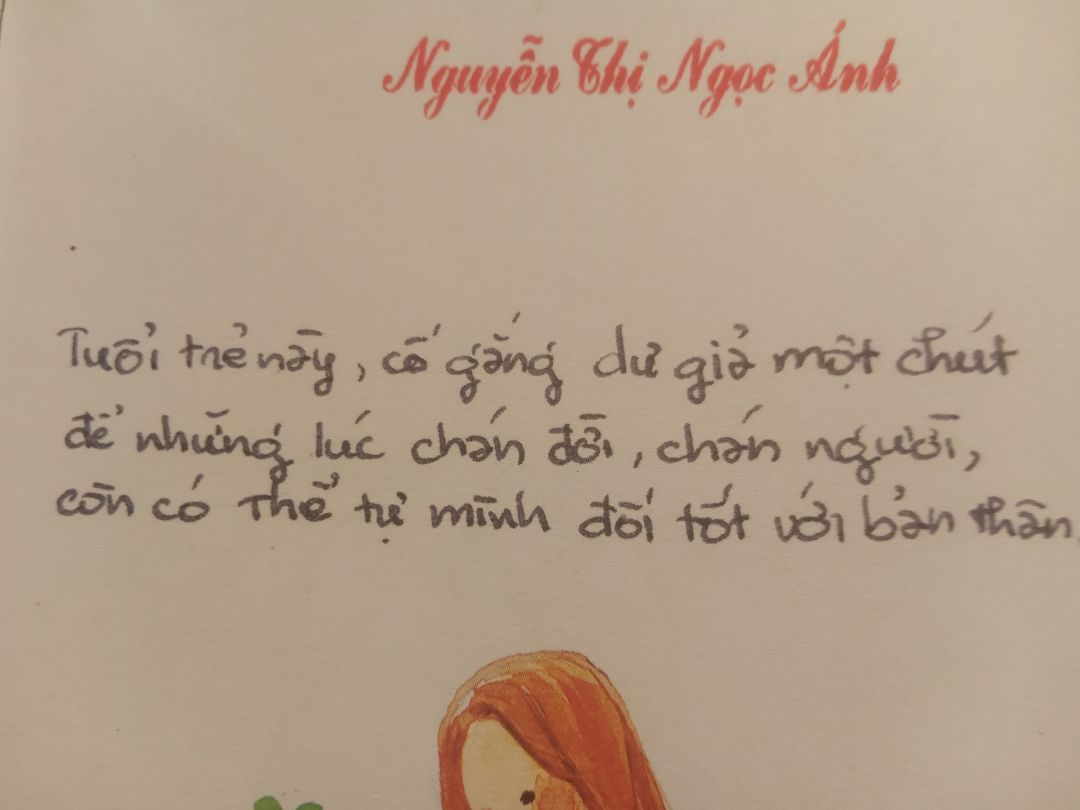 Nguyễn Thị Ngọc Ánh
Tuổi trẻ này, cố gắng dư giả một chút
để những lúc chán đời, chán người,
còn có thể tự mình đối tốt với bản thân.